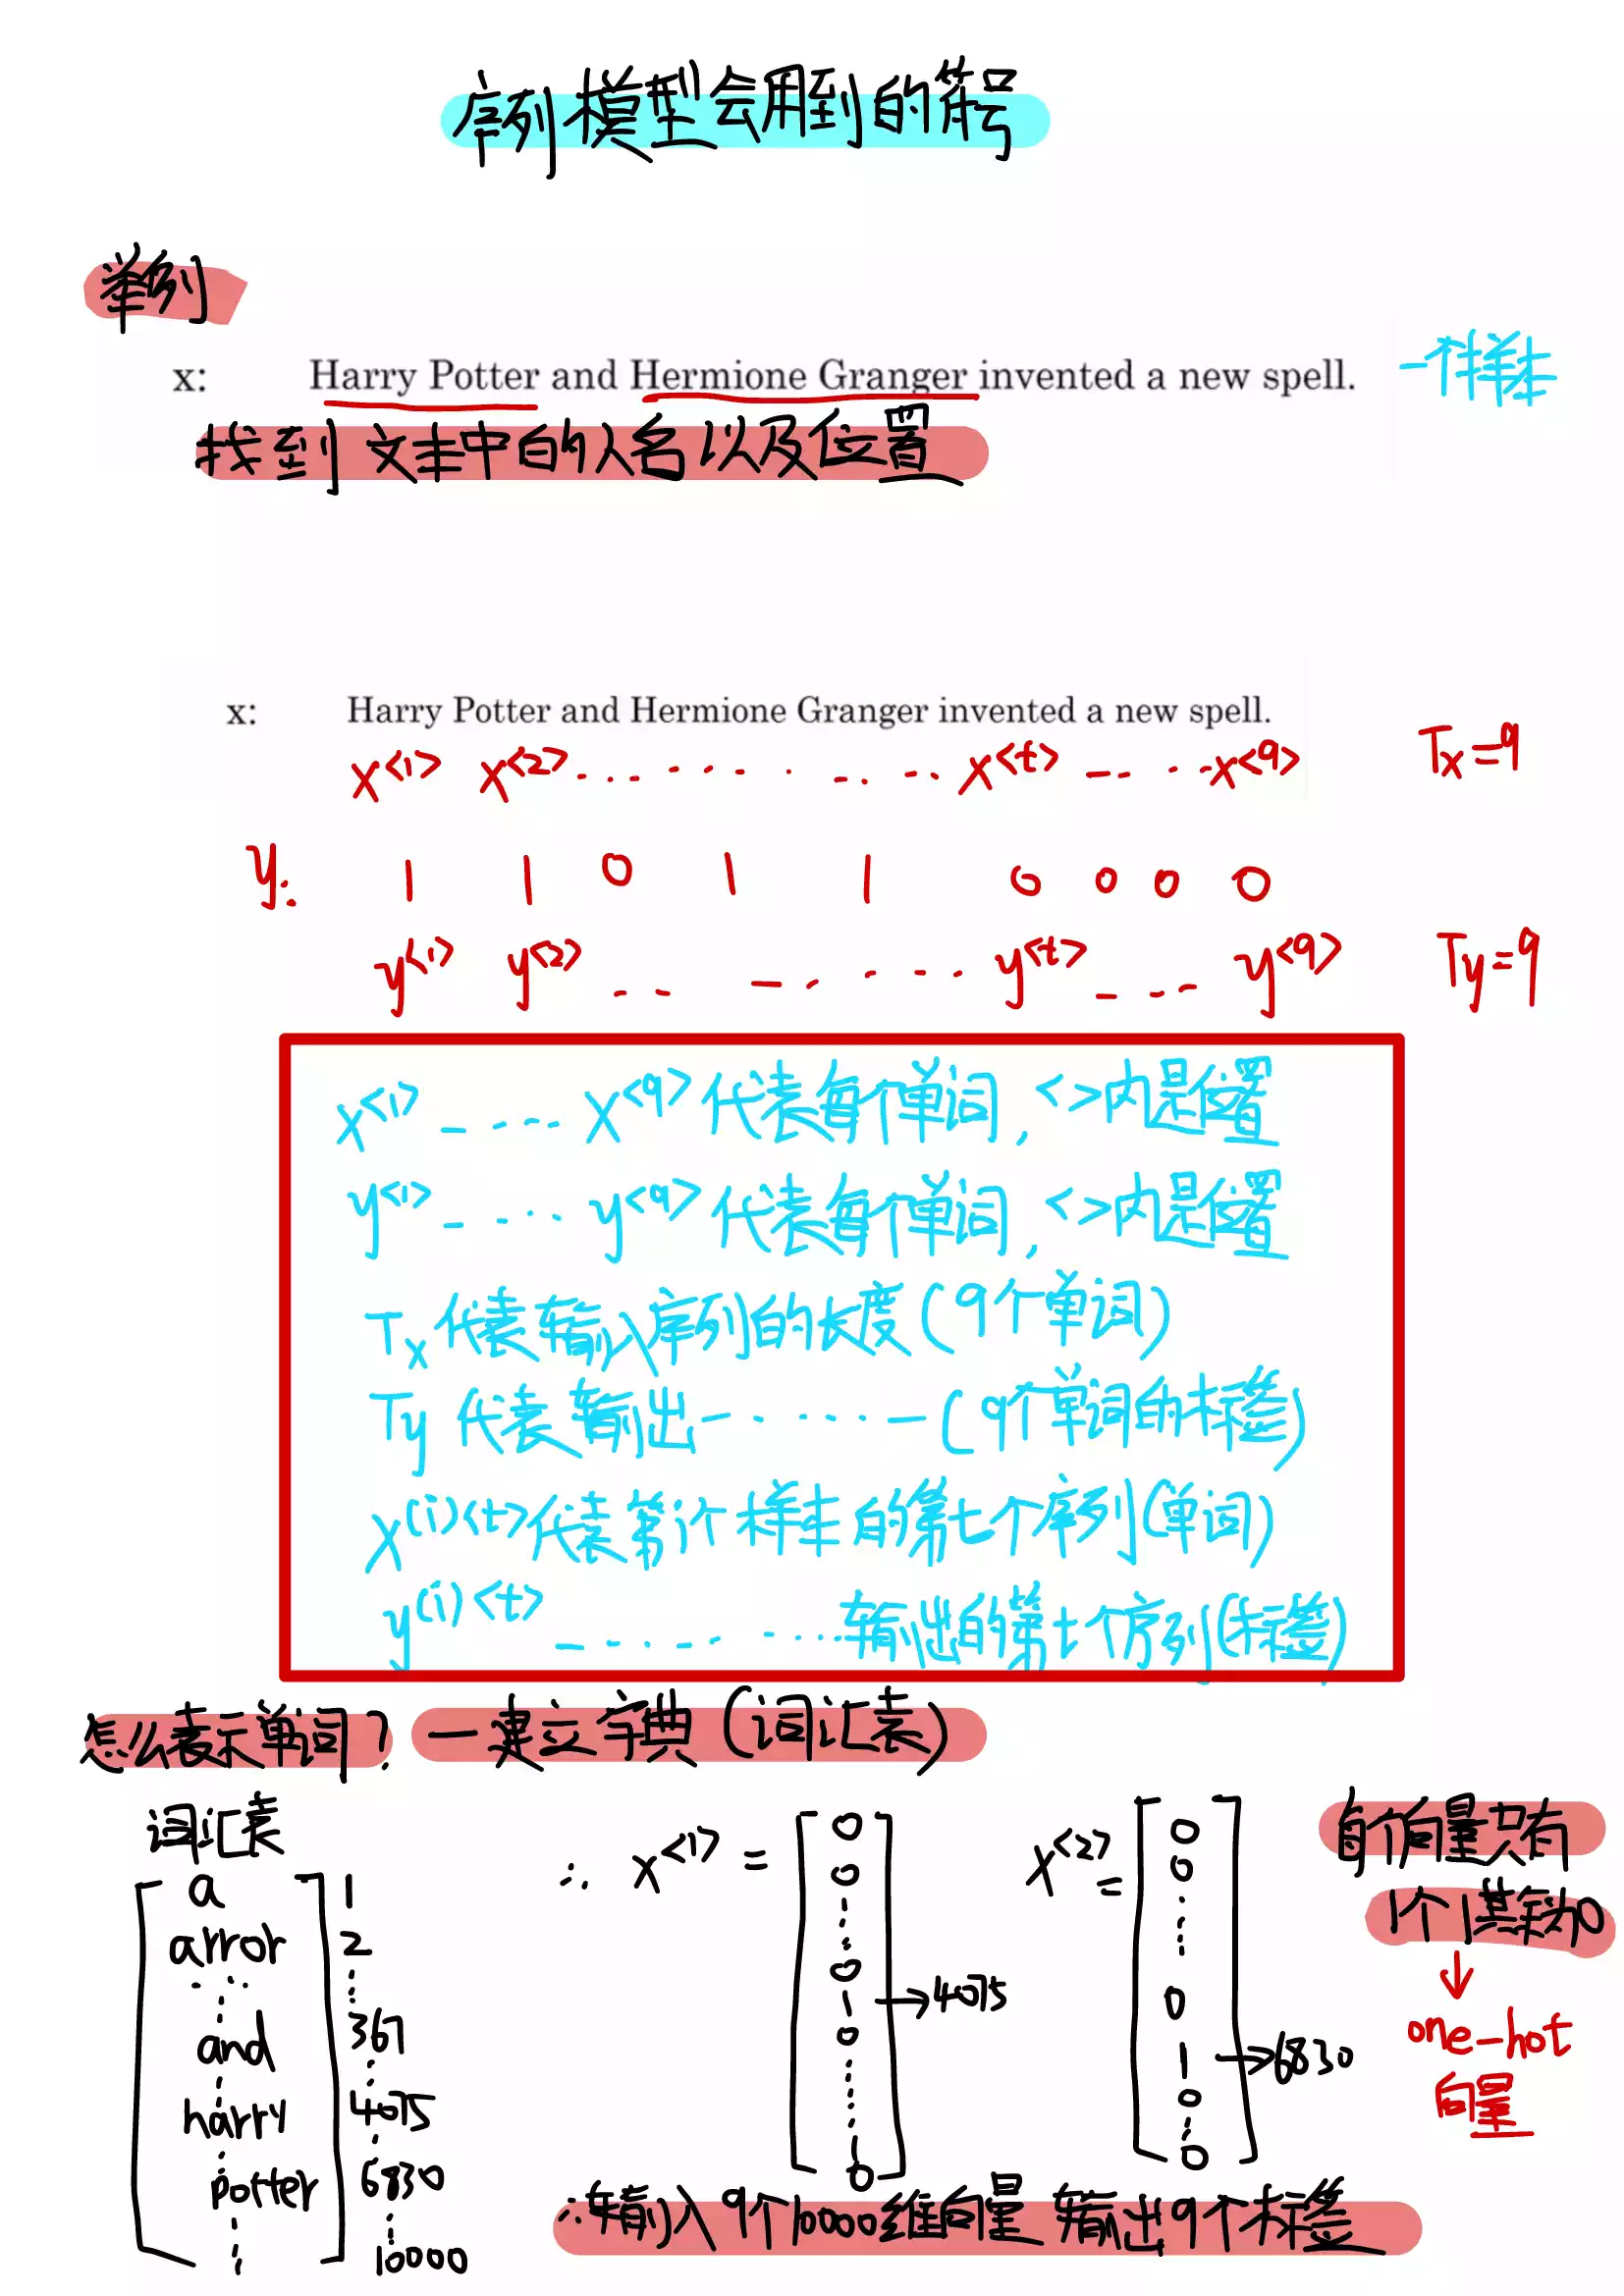 序列模型会用到的符号
举例
x: Harry Potter and Hermione Granger invented a new spell. 一个样本
找到文本中的人名以及位置
x: Harry Potter and Hermione Granger invented a new spell.
x<1> x<2> ............ x<t> ..... x<9> Tx=9
y: 1 1 0 1 1 0 0 0 0
y<1> y<2> ........ y<t> ..... y<9> Ty=9
x<1> ..... x<9> 代表每个单词, <>内是位置
y<1> ..... y<9> 代表每个单词, <>内是位置
Tx 代表输入序列的长度(9个单词)
Ty 代表输出--·····-(9个单词的标签)
x(i)<t>代表第i个样本的第t个序列(单词)
y(i)<t> ............输出的第t个序列(标签)
怎么表示单词? 一建立字典(词汇表)
词汇表
a 1
arror 2
and 367
harry 4075
potter 6830
10000
∴ x<1> = [0 0 ⋮ 0 1 0 ⋮ 0] →4075
x<2> = [0 0 ⋮ 0 1 0 ⋮ 0] →6830
每个向量只有
1个1其余为0
↓
one-hot
向量
∴输入9个10000维向量 输出9个标签